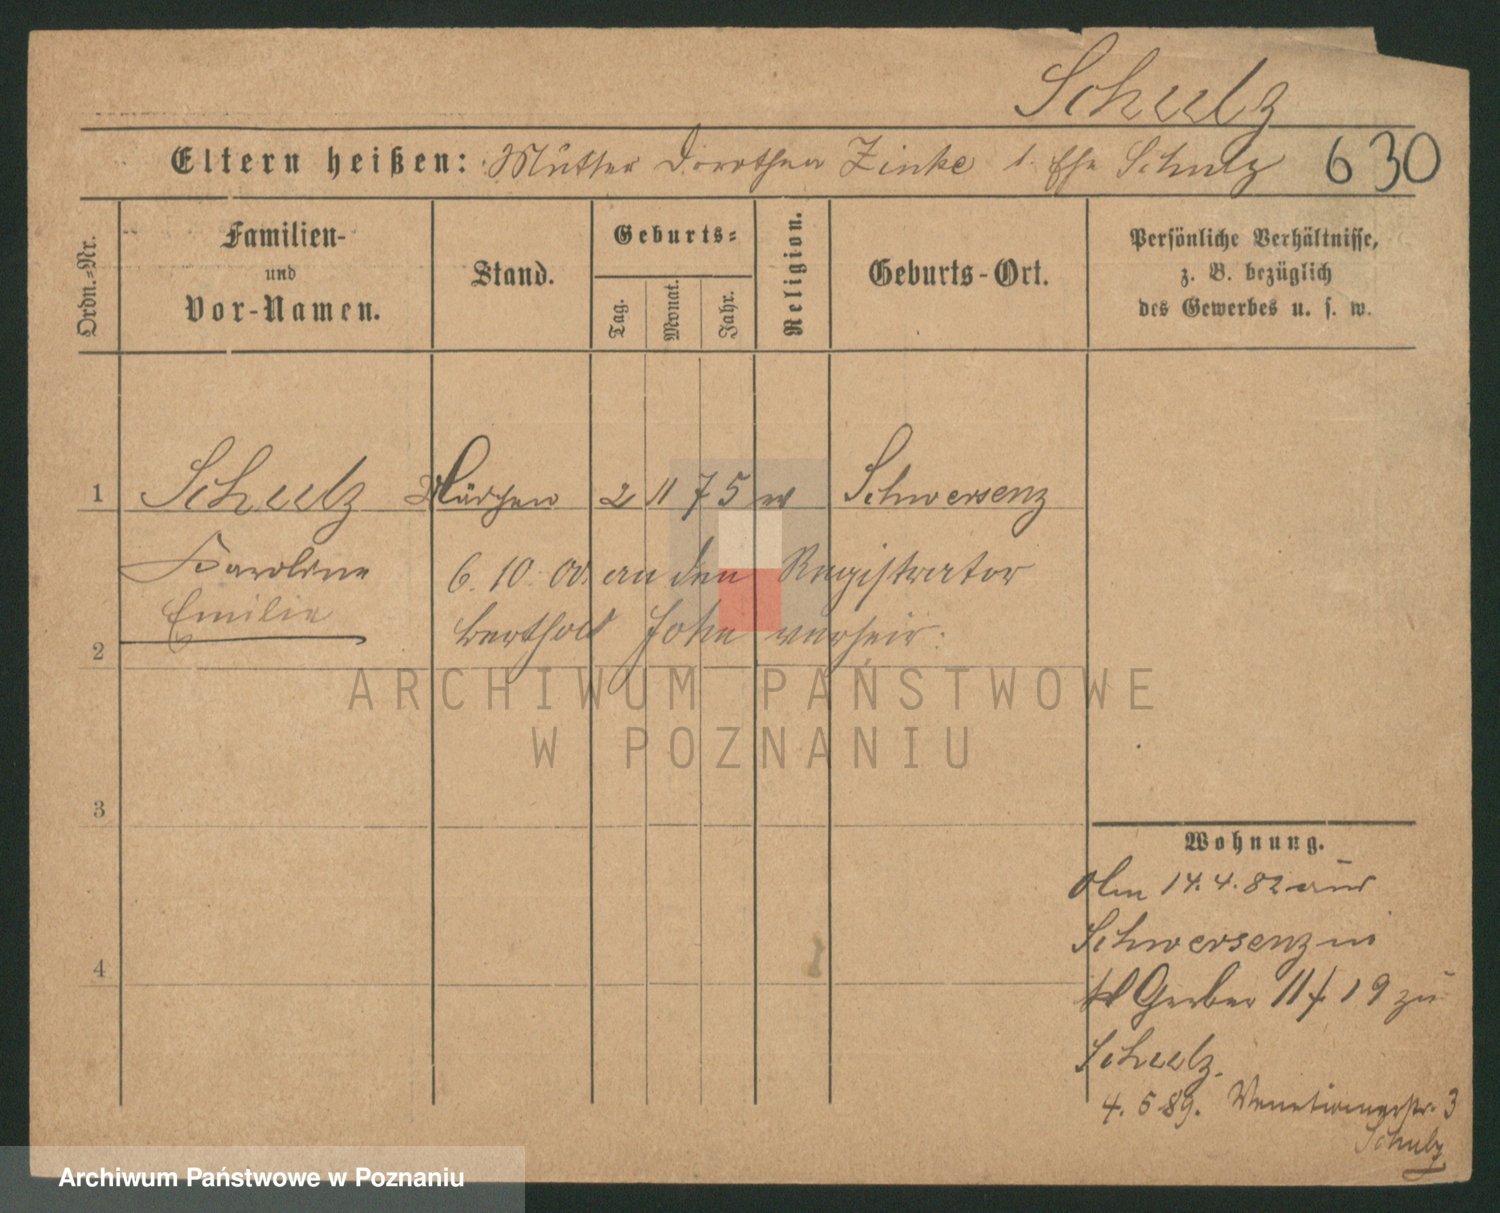 Schulz
Eltern heißen: Mutter Dorothea Zinke 1. Ehe Schulz 630
Ordn.-Nr.
Familien-
und
Vor-Namen.
Stand.
Geburts-
Tag.
Monat.
Jahr.
Religion.
Geburts-Ort.
Persönliche Verhältnisse,
z. B. bezüglich
des Gewerbes u. s. w.
1 Schulz Mädchen 2 11 75 Schwersenz
Karoline 6. 10. 00. an den Registrator
Emilie Berthold John verheir.
2
3
4
ARCHIWUM PAŃSTWOWE
W POZNANIU
Wohnung.
Am 14.4.82 aus
Schwersenz in
Kl Gerber 19 zu
Schulz.
4. 5 89. Venetianerstr. 3
Schulz
Archiwum Państwowe w Poznaniu